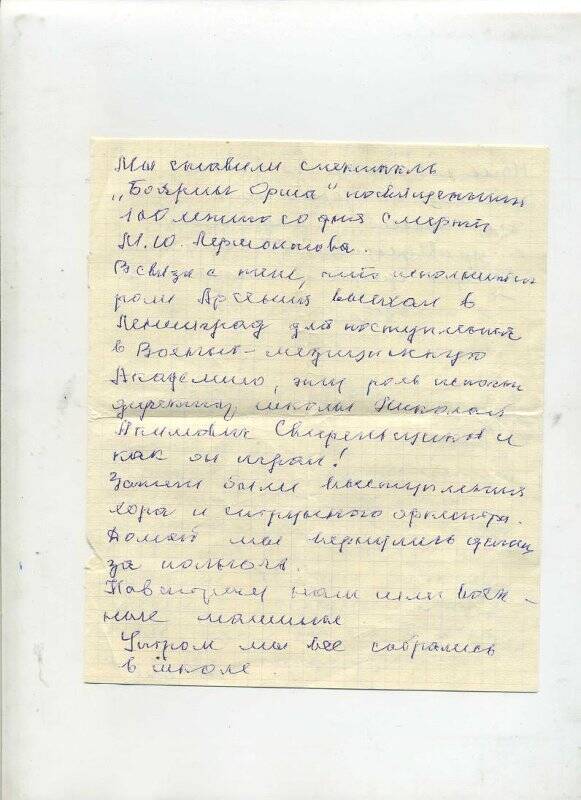 Мы ставили спектакль
„Боярин Орша" посвященный
100 летию со дня смерти
М.Ю. Лермонтова.
В связи с тем, что исполнитель
роли Арсения выехал в
Ленинград для поступления
в Военно-медицинскую
Академию, эту роль исполнял
директор школы Николай
Акимович и
как он играл!
Затем были выступления
хора и струнного оркестра.
Домой мы вернулись
за полночь.
Навстречу нам шли воен-
ные машины
Утром мы все собрались
в школе